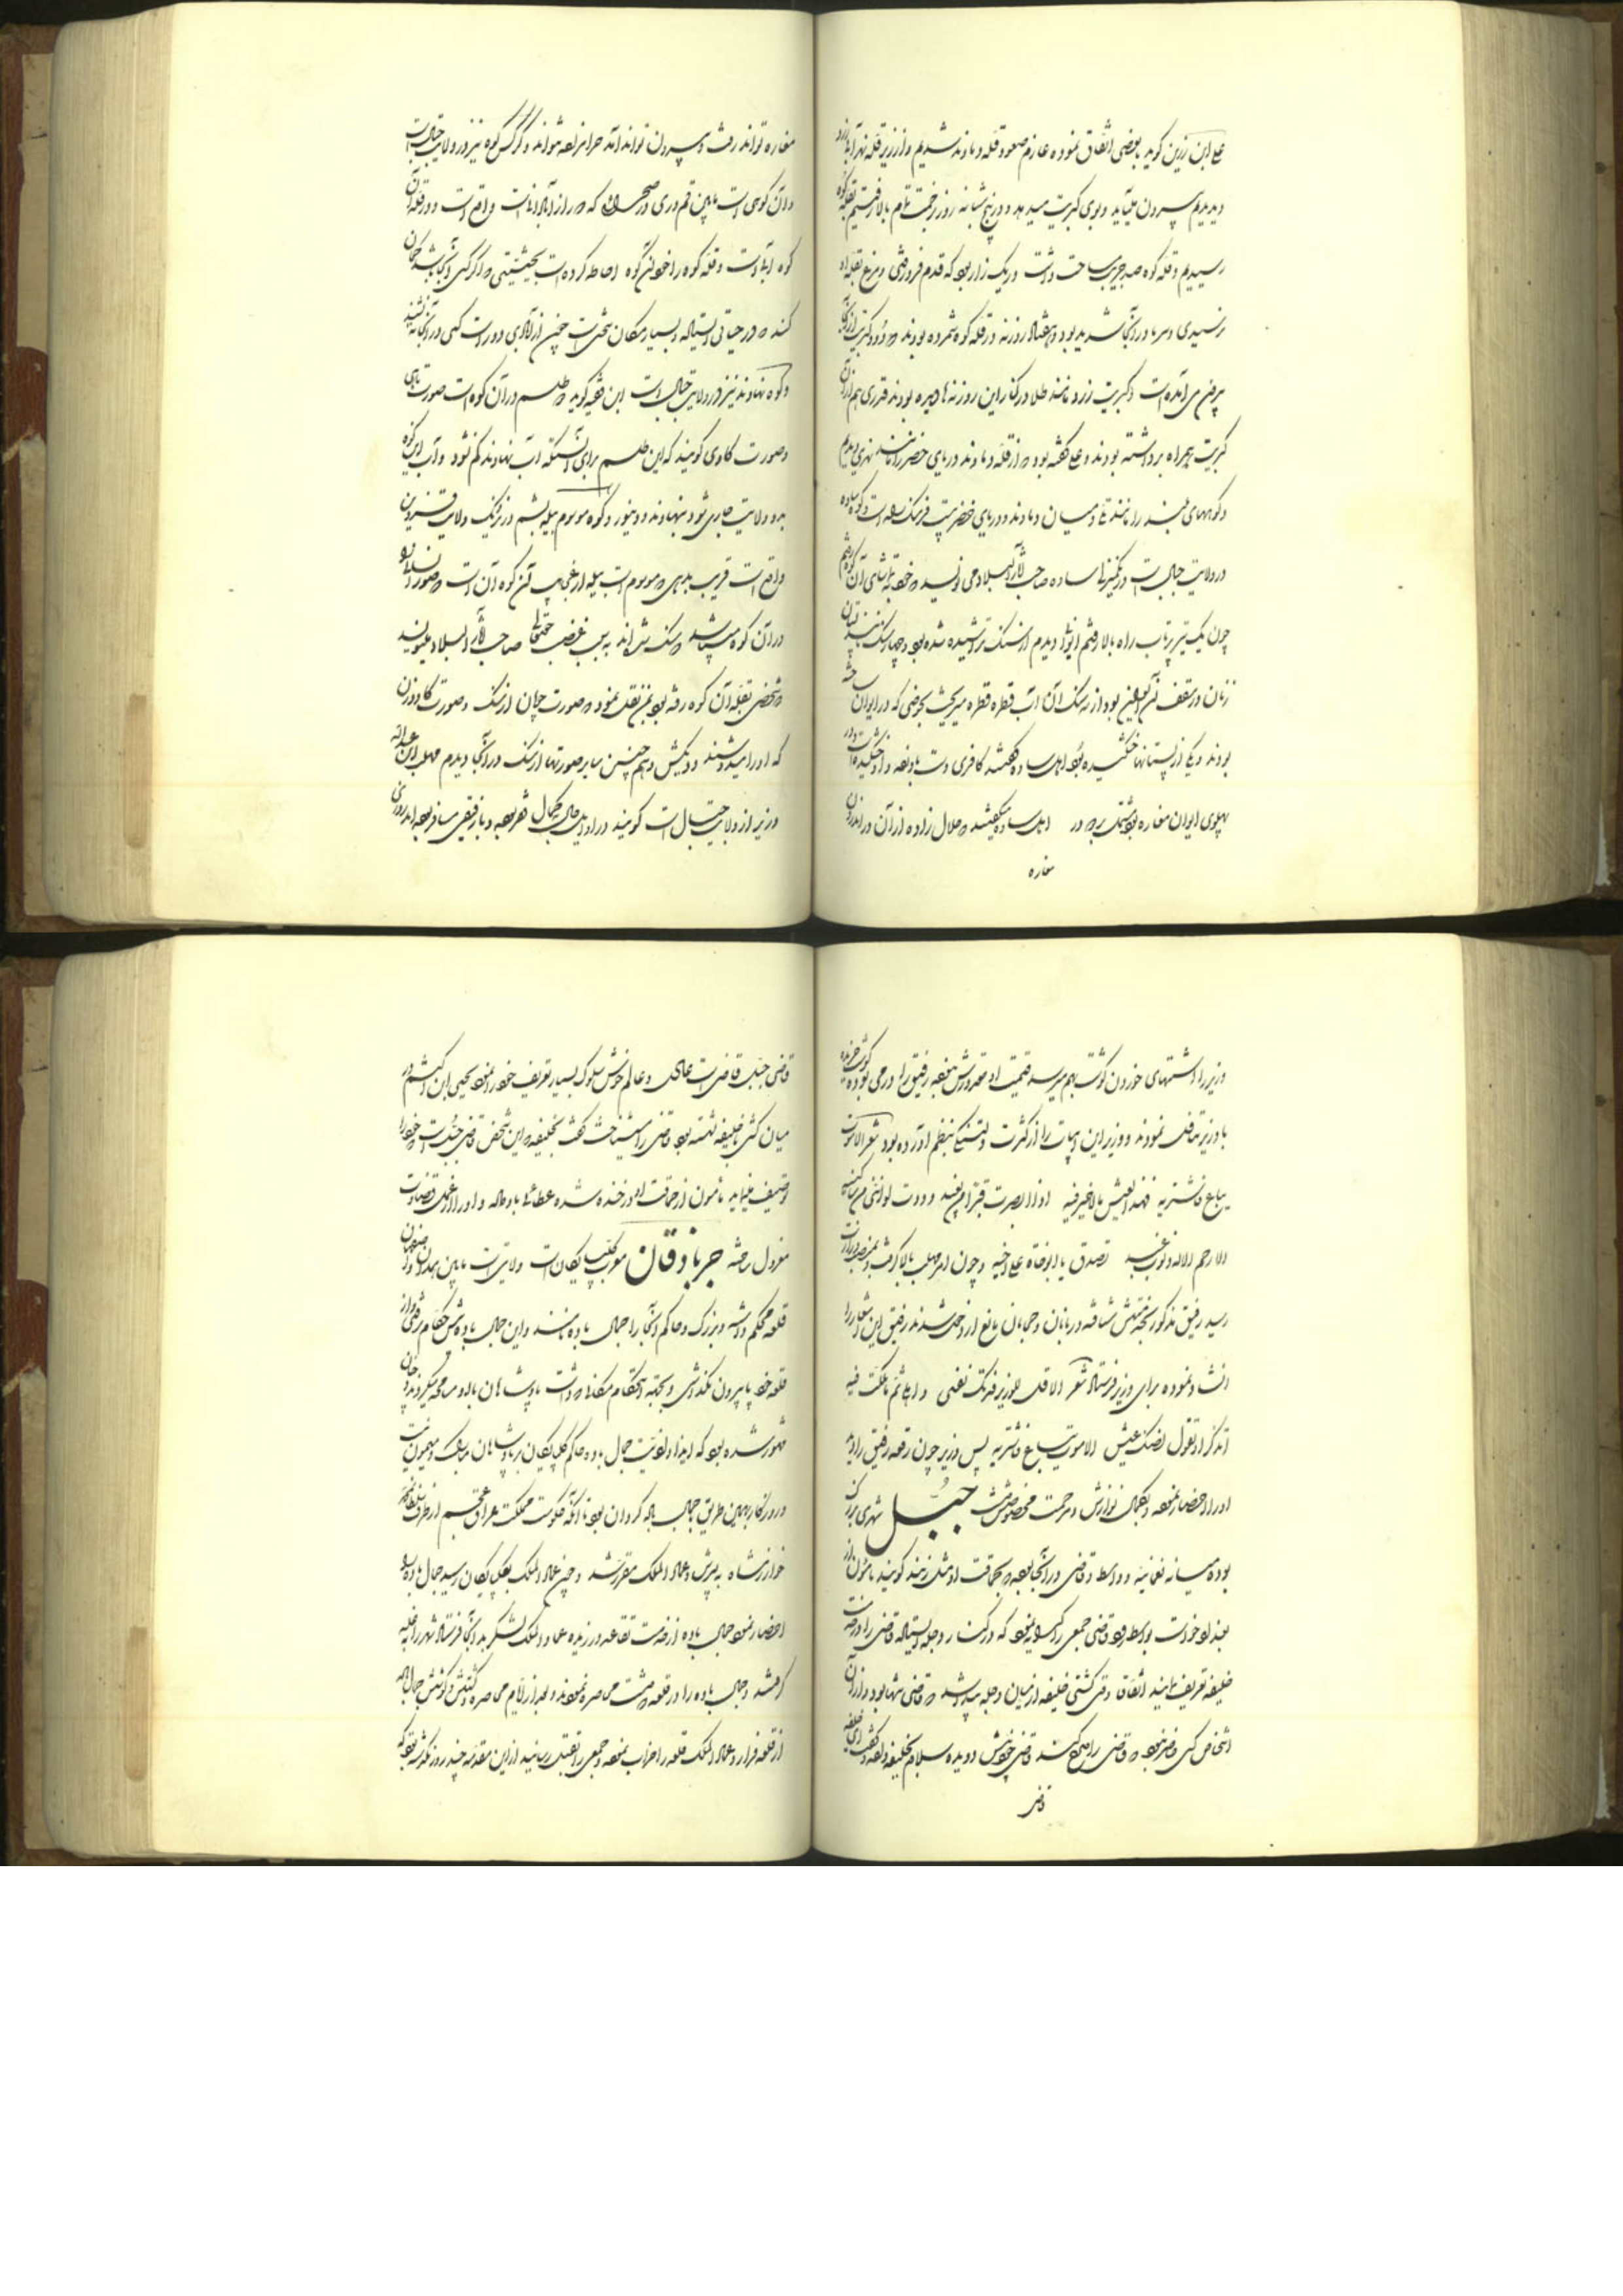 علی ابن رزین گوید بعضی اتفاق نموده عازم صعود قله دماوند شدیم و از زیر قله نهر آبی زرد
دیدیم بیرون میآید و بوی کبریت میدهد و در پنج شبانه روز زحمت تمام بالا رفتیم بقله کوه
رسیدیم و قله کوه صد جریب مساحت داشت و ریگ زار بود که قدم فرو رفتی و مرغ بقله او
نرسیدی و سرما در آنجا شدید بود و هفتاد روزنه در قله کوه شمرده بودند که دود کبریت از آنجا
بیرون می آمده است و کبریت زرد مانند طلا در کنار این روزنه ها دیده بودند قدری هم از آن
کبریت همراه برداشته بودند و علی گفته بود که از قله دماوند دریای خضر را مانند نهری دیدم
و کوههای بلند را مانند تل و میان دماوند و دریای خضر بیست فرسنگ راه است کوه ساده
در ولایت جبال است صاحب آثار البلاد می نویسد که خود بتماشای آن کوه رفتم
چون یک تیر پرتاب راه بالا رفتم ایوانی دیدم از سنگ تراشیده شده بود و چهار سنگ مانند پستان
زنان در سقف آن بود از سه سنگ آن آب قطره قطره میریخت بحوضی که در ایوان ساخته
بودند و یکی از پستانها خشکیده بود اهل ساوه گفتند کافری دست باو نهاده و او خشکیده است و در
پهلوی ایوان مغاره بود اهل ساوه میگفتند که حلال زاده از آن در اندرون
مغاره
مغاره تواند رفت و بیرون تواند آمد حرامزاده نتواند و کرکس کوه نیز در ولایت جبال است
و آن کوهی است مابین قم و ری در صحرای که دور از آبادانیست واقع است و در قله آن
کوه آب است و قله کوه را خود آن کوه احاطه کرده است بحیثیتی که اگر کسی آنجا باشد گمان
کند که در حیاتی ایستاده و بسیار مکان سختی است چون از آبادی دور است کسی در آنجا نه نشیند
و کوه نهاوند نیز در ولایت جبال است ابن فقیه گوید که طلسم در آن کوه است صورت ماهی
و صورت گاوی گویند که این طلسم برای آنستکه آب نهاوند کم نشود و آب این کوه
بدو ولایت جاری شود نهاوند و دینور و کوه موسوم بیله بشم در نزدیک ولایت قزوین
واقع است قریب بدهی که موسوم است بیله از عجایب آن کوه آن است که صورت انسانها
در آن کوه میباشد که سنگ شده اند به سبب غضب حقتعالی صاحب آثار البلاد میگوید
که شخصی بقله آن کوه رفته بود بمن نقل نمود که صورت چوپان از سنگ و صورت گاو و زن
که او را میدوشند و همچنین سایر صورتها از سنگ در آنجا دیدم مهلب ابن عبداله
وزیر از ولایت جبال است گویند در اوایل حال فقیر بود و با رفیقی مسافر بوده اند روزی
وزیر را اشتهای خوردن گوشت بهم میرسد قیمت او مقدورش نبوده رفیق را درهمی بوده گوشت خریده
با وزیر تناول نمودند و وزیر این ابیات را از کثرت دلتنگی بنظم آورده بود شعر الا موت
یباع فاشتریه فهذا العیش مالا خیر فیه اذا ابصرت قبرا من بعید وددت لو اننی مما یلیه
الا رحم الاله ذنوب عبد تصدق بالوفاة علی اخیه و چون امر مهلب بالا گرفت و بمنصب وزارت
رسید رفیق مذکور بخدمتش شتافته دربانان و حاجبان مانع از دخول شدند رفیق این اشعار را
انشاد نموده برای وزیر فرستاد شعر الا قل للوزیر فدتک نفسی
اتذکر اذ تقول لضنک عیش الا موت یباع فاشتریه پس وزیر چون رقعه رفیق را دید
او را احضار نموده و بکمال نوازش و مرحمت مخصوص داشت جبل شهری بزرگ
بوده میانه نعمانیه و واسط و قاضی در آنجا بوده که بحماقت او مثل زنند گویند مامون از
بغداد خواست بواسط رود قاضی جمعی را که در کنار دجله ایستاده قاضی را در خدمت
خلیفه تعریف نمایند اتفاقا وقتی کشتی خلیفه از میان دجله پیدا شد که قاضی تنها بود و از آن
اشخاص کسی حاضر نبود که قاضی را مدح کنند قاضی خودش دویده سلام بخلیفه داده و گفت ای خلیفه
قاضی
قاضی جبل قاضی است عادل و عالم خوش سلوک بسیار تعریف خود را نمود یحیی ابن اکثم در
میان کشتی با خلیفه نشسته بود قاضی را شناخت گفت بخلیفه که این شخص قاضی جبل است که خود را
توصیف مینماید مامون از حماقت او در خنده شده عطائی باو داد و او را از عمل قضاوت
معزول ساخت جربادقان معرب گلپایگان است ولایتی است مابین همدان و اصفهان
قلعه محکم داشته و بزرگ و حاکم آنجا را جمال باده نامند و این جمال باده شش حکام هرگز از
قلعه خود پا بیرون نگذاشتی و بجهة استحکام مکانی که داشت پادشاهان با او مسامحه میکردند و چنان
مشهور شده بود که ایذا و اذیت جمال باده حاکم گلپایگان بر پادشاهان مبارک و میمون نیست
و روزگار بهمین طریق جمال باده گذران بود تا آنکه حکومت مملکت عراق عجم از طرف سلطان محمد
خوارزمشاه به پسرش و عماد الملک مقرر شد و چون عماد الملک بگلپایگان رسید جمال باده را
احضار نمود جمال باده از خدمت تقاعد ورزیده عماد الملک لشکر بدانجا فرستاد شهر را
گرفتند و جمال باده را در قلعه که داشت محاصره نمودند و بعد از ایام محاصره و کشش و کوشش جمال باده
از قلعه فرار و عماد الملک قلعه را خراب نمود و جمعی را بقتل رسانید از این مقدمه چند روز نگذشته بود که